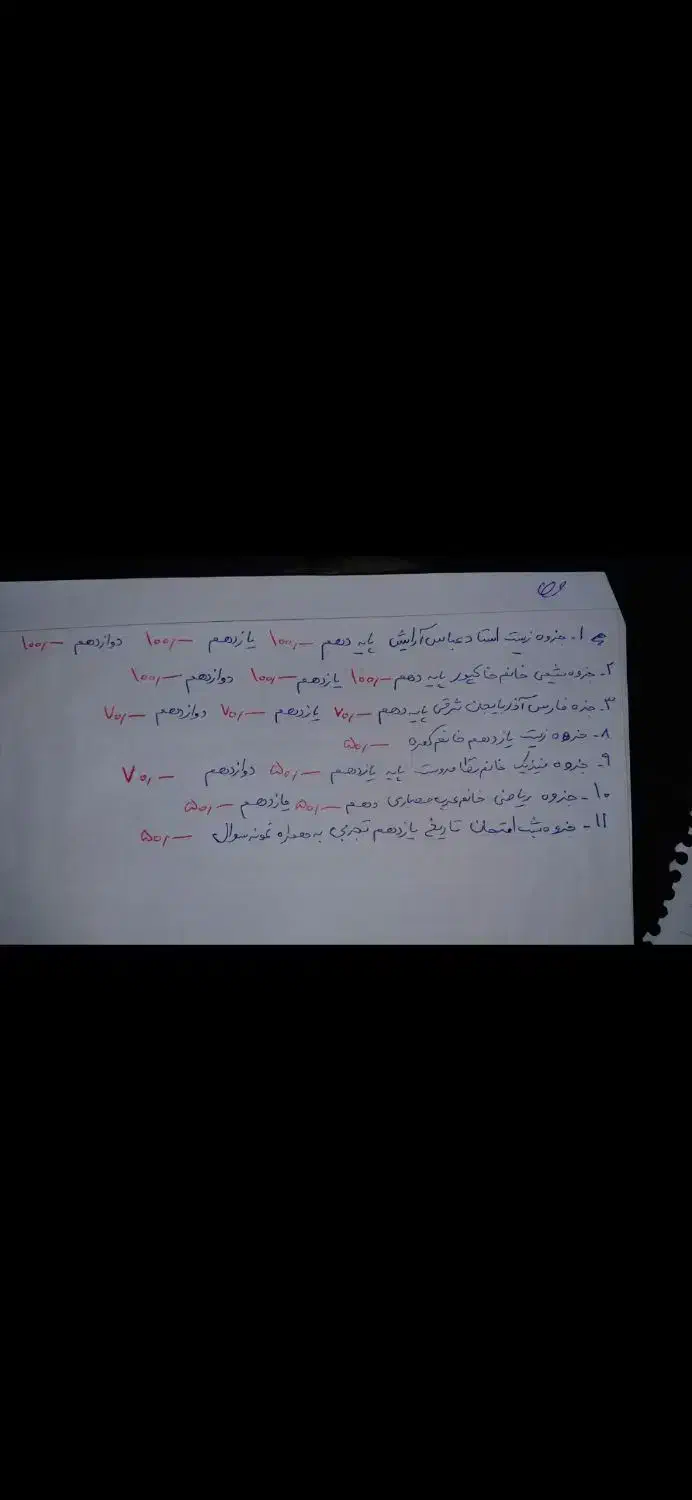 ۱- جزوه زیست استاد عباس آرایش پایه دهم ۱۰۰,— یازدهم ۱۰۰,— دوازدهم ۱۰۰,—
۲- جزوه شیمی خانم خاکپور پایه دهم ۱۰۰,— یازدهم ۱۰۰,— دوازدهم ۱۰۰,—
۳- جزه فارسی آذربایجان شرقی پایه دهم ۷۰,— یازدهم ۷۰,— دوازدهم ۷۰,—
۸- جزوه زیست یازدهم خانم ۵۰,—
۹- جزوه فیزیک خانم پایه یازدهم ۵۰,— دوازدهم ۷۰,—
۱۰- جزوه ریاضی خانم دهم ۵۰,— یازدهم ۵۰,—
۱۱- جزوه شب امتحان تاریخ یازدهم تجربی به همراه نمونه سوال ۵۰,—